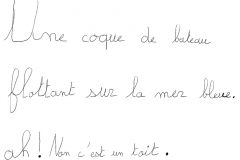 Une coque de bateau
flottant sur la mer bleue.
ah! Non c'est un toit.